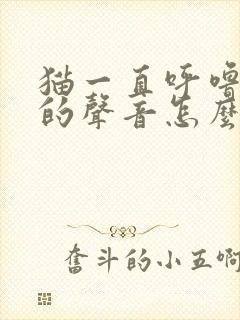 猫一直呼嚕
的聲音怎麼
奮斗的小五啊